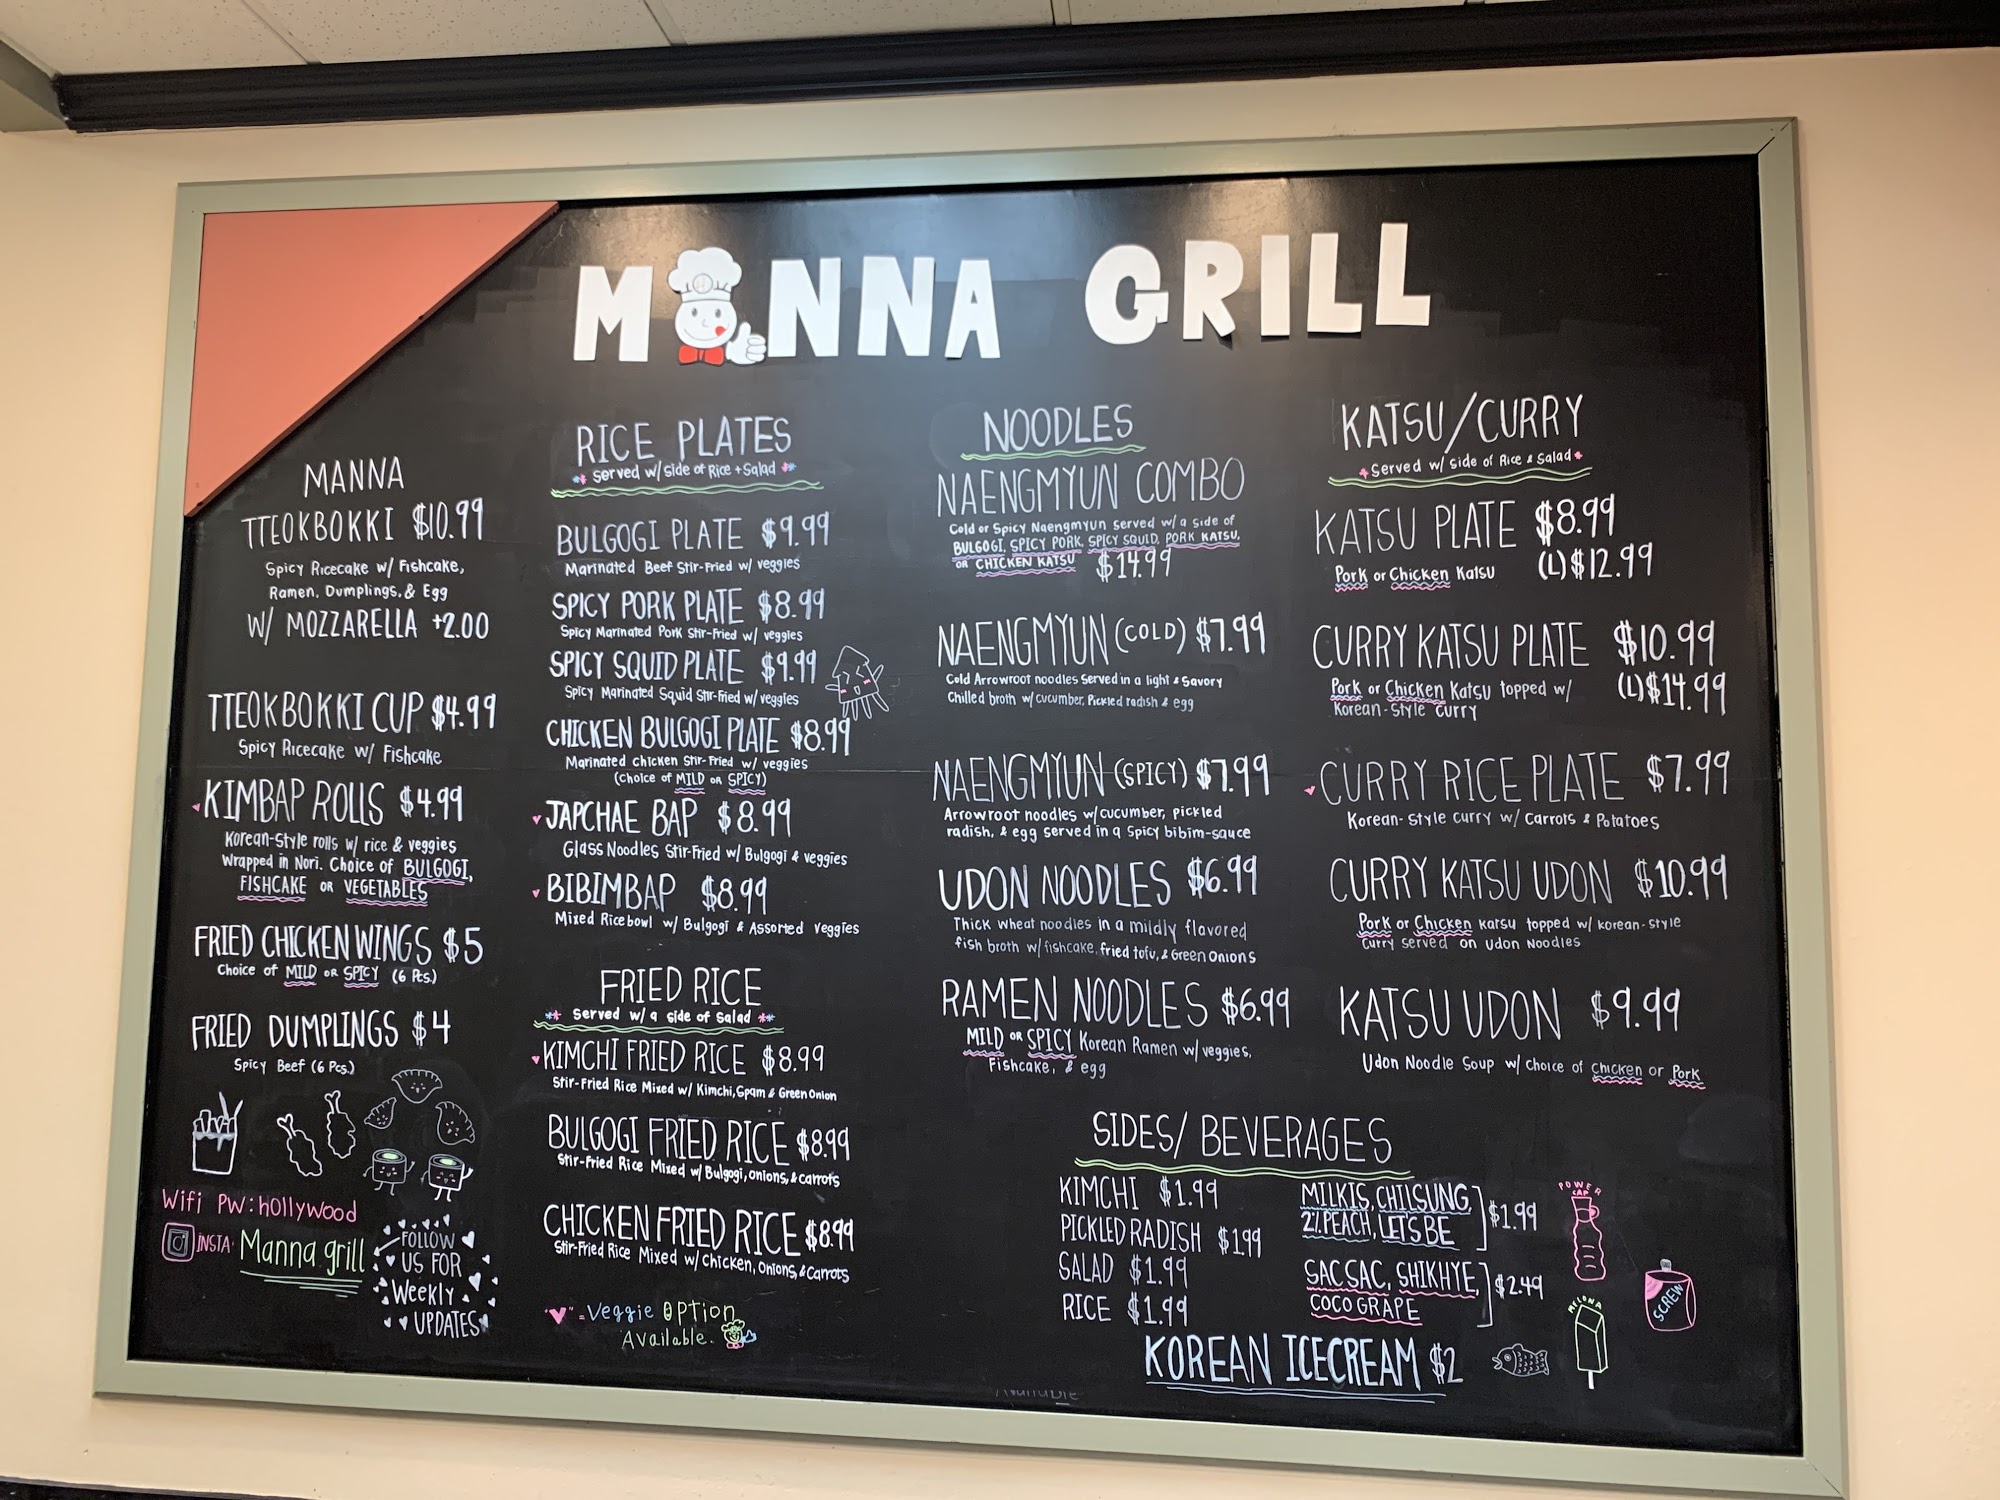 MANNA GRILL
MANNA
TTEOKBOKKI $10.99
Spicy Ricecake w/ Fishcake,
Ramen, Dumplings, & Egg
W/ MOZZARELLA +2.00
TTEOKBOKKI CUP $4.99
Spicy Ricecake w/ Fishcake
KIMBAP ROLLS $4.99
Korean-Style rolls w/ rice & veggies
Wrapped in Nori. Choice of BULGOGI,
FISHCAKE OR VEGETABLES
FRIED CHICKEN WINGS $5
Choice of MILD OR SPICY (6 Pcs.)
FRIED DUMPLINGS $4
Spicy Beef (6 Pcs.)
Wifi PW: hollywood
INSTA: Manna grill
FOLLOW
US FOR
Weekly
UPDATES
RICE PLATES
Served w/ side of Rice + Salad
BULGOGI PLATE $9.99
Marinated Beef Stir-Fried w/ veggies
SPICY PORK PLATE $8.99
Spicy Marinated Pork Stir-Fried w/ veggies
SPICY SQUID PLATE $9.99
Spicy Marinated Squid Stir-Fried w/ veggies
CHICKEN BULGOGI PLATE $8.99
Marinated chicken Stir-Fried w/ veggies
(choice of MILD OR SPICY)
JAPCHAE BAP $8.99
Glass Noodles Stir-Fried w/ Bulgogi & veggies
BIBIMBAP $8.99
Mixed Ricebowl w/ Bulgogi & Assorted veggies
FRIED RICE
Served w/ a side of Salad
KIMCHI FRIED RICE $8.99
Stir-Fried Rice Mixed w/ Kimchi, Spam & Green Onion
BULGOGI FRIED RICE $8.99
Stir-Fried Rice Mixed w/ Bulgogi, onions, & carrots
CHICKEN FRIED RICE $8.99
Stir-Fried Rice Mixed w/ Chicken, Onions, & Carrots
"♥" = Veggie Option
Available.
NOODLES
NAENGMYUN COMBO
Cold or Spicy Naengmyun served w/ a side of
BULGOGI, SPICY PORK, SPICY SQUID, PORK KATSU,
OR CHICKEN KATSU $14.99
NAENGMYUN (COLD) $7.99
Cold Arrowroot noodles Served in a light & Savory
Chilled broth w/ cucumber, Pickled radish & egg
NAENGMYUN (SPICY) $7.99
Arrowroot noodles w/ cucumber, pickled
radish, & egg served in a spicy bibim-sauce
UDON NOODLES $6.99
Thick wheat noodles in a mildly flavored
fish broth w/ fishcake, fried tofu, & Green Onions
RAMEN NOODLES $6.99
MILD OR SPICY Korean Ramen w/ veggies,
Fishcake, & egg
KATSU/CURRY
Served w/ side of Rice & Salad
KATSU PLATE $8.99
Pork or Chicken Katsu (L) $12.99
CURRY KATSU PLATE $10.99
Pork or Chicken Katsu topped w/ (L) $14.99
Korean-Style curry
CURRY RICE PLATE $7.99
Korean-Style curry w/ Carrots & Potatoes
CURRY KATSU UDON $10.99
Pork or Chicken Katsu topped w/ korean-style
curry served on Udon Noodles
KATSU UDON $9.99
Udon Noodle Soup w/ choice of Chicken or Pork
SIDES/BEVERAGES
KIMCHI $1.99
PICKLED RADISH $1.99
SALAD $1.99
RICE $1.99
MILKIS, CHILSUNG,
2% PEACH, LET'S BE $1.99
SACSAC, SHIKHYE,
COCO GRAPE $2.49
KOREAN ICECREAM $2
POWER
CAP
MELONA
SCREW